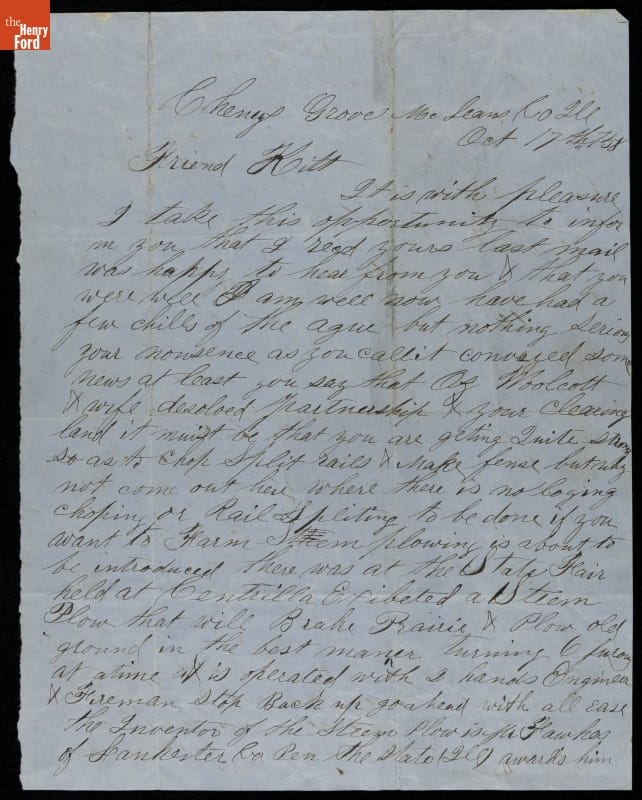 the
Henry
Ford
Chenys Grove McLeans Co Ill
Oct 17th /58
Friend Kitt
It is with pleasure
I take this opportunity to infor
m you that I recd yours last mail
was happy to hear from you & that you
were well I am well now have had a
few chills of the ague but nothing serious
your nonsence as you call it conveyed some
news at least you say that Oz Woolcott
& wife desolved partnership & your clearing
land it must be that you are geting Quite strong
so as to chop Split rails & Make fense but why
not come out here where there is no loging
choping or Rail Spliting to be done if you
want to Farm Steem plowing is about to
be introduced there was at the State Fair
held at Centrilla Exibeted a Steem
Plow that will Brake Prairie & Plow old
ground in the best maner turning 6 furows
at a time & is operated with 2 hands Engineer
& Fireman Stop Back up go ahead with all ease
the Inventor of the Steem Plow is Mr Fawkes
of Lankester Co Pen the State (Ill) awards him